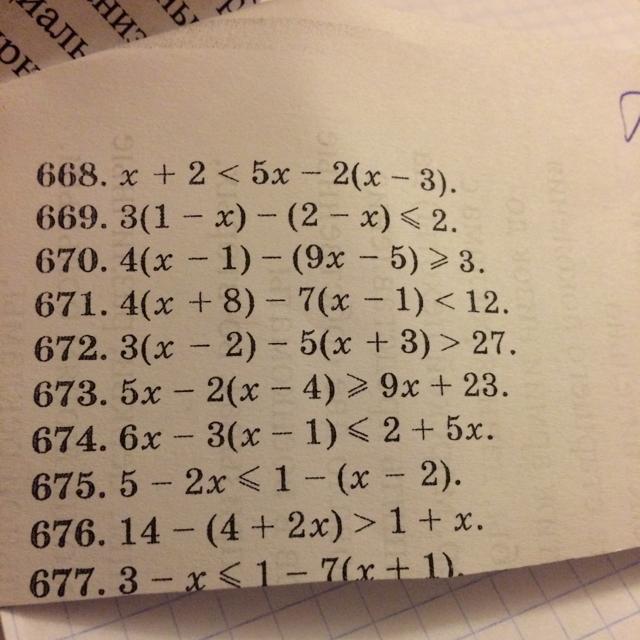 668. x + 2 < 5x − 2(x − 3).
669. 3(1 − x) − (2 − x) ⩽ 2.
670. 4(x − 1) − (9x − 5) ⩾ 3.
671. 4(x + 8) − 7(x − 1) < 12.
672. 3(x − 2) − 5(x + 3) > 27.
673. 5x − 2(x − 4) ⩾ 9x + 23.
674. 6x − 3(x − 1) ⩽ 2 + 5x.
675. 5 − 2x ⩽ 1 − (x − 2).
676. 14 − (4 + 2x) > 1 + x.
677. 3 − x ⩽ 1 − 7(x + 1).